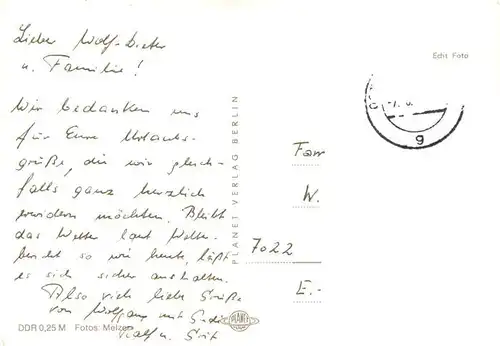 Lieber Wolf-Dieter
u. Familie!
Wir bedanken uns
für Eure Urlaubs-
grüße, die wir gleich-
falls ganz herzlich
erwidern möchten. Bleibt
das Wetter laut Wetter-
bericht so wie heute, läßt
es sich sicher aushalten.
Also viele liebe Grüße
von Wolfgang und
Ralf u. Grit
DDR 0,25 M Fotos: Melzer
PLANET VERLAG BERLIN
PLANET
Echt Foto
g
Fam
W.
7022
E.-